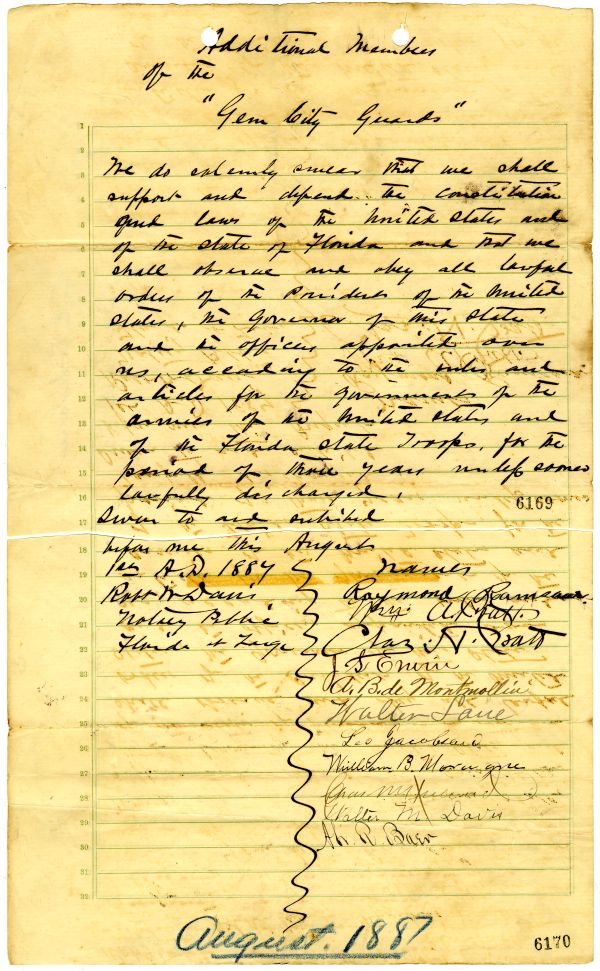 Additional Members
of the
"Gem City Guards"
We do solemnly swear that we shall
support and defend the constitution
and laws of the United States and
of the state of Florida and that we
shall observe and obey all lawful
orders of the President of the United
states, the Governor of this State
and the officers appointed over
us, according to the rules and
articles for the government of the
armies of the United States and
of the Florida State Troops, for the
period of three years unless sooner
lawfully discharged.
6169
Sworn to and subscribed
before me this August
1st A.D. 1887
Robt W Davis
Notary Public
Florida at Large
Names
Raymond
Wm A. Pratt
Chas. N. Pratt
J. S. Erwin
A. B. de Montmollin
Walter Lane
Leo Jacobson
William B. Moragne
Chas
Walter M Davis
R. Baer
August. 1887
6170